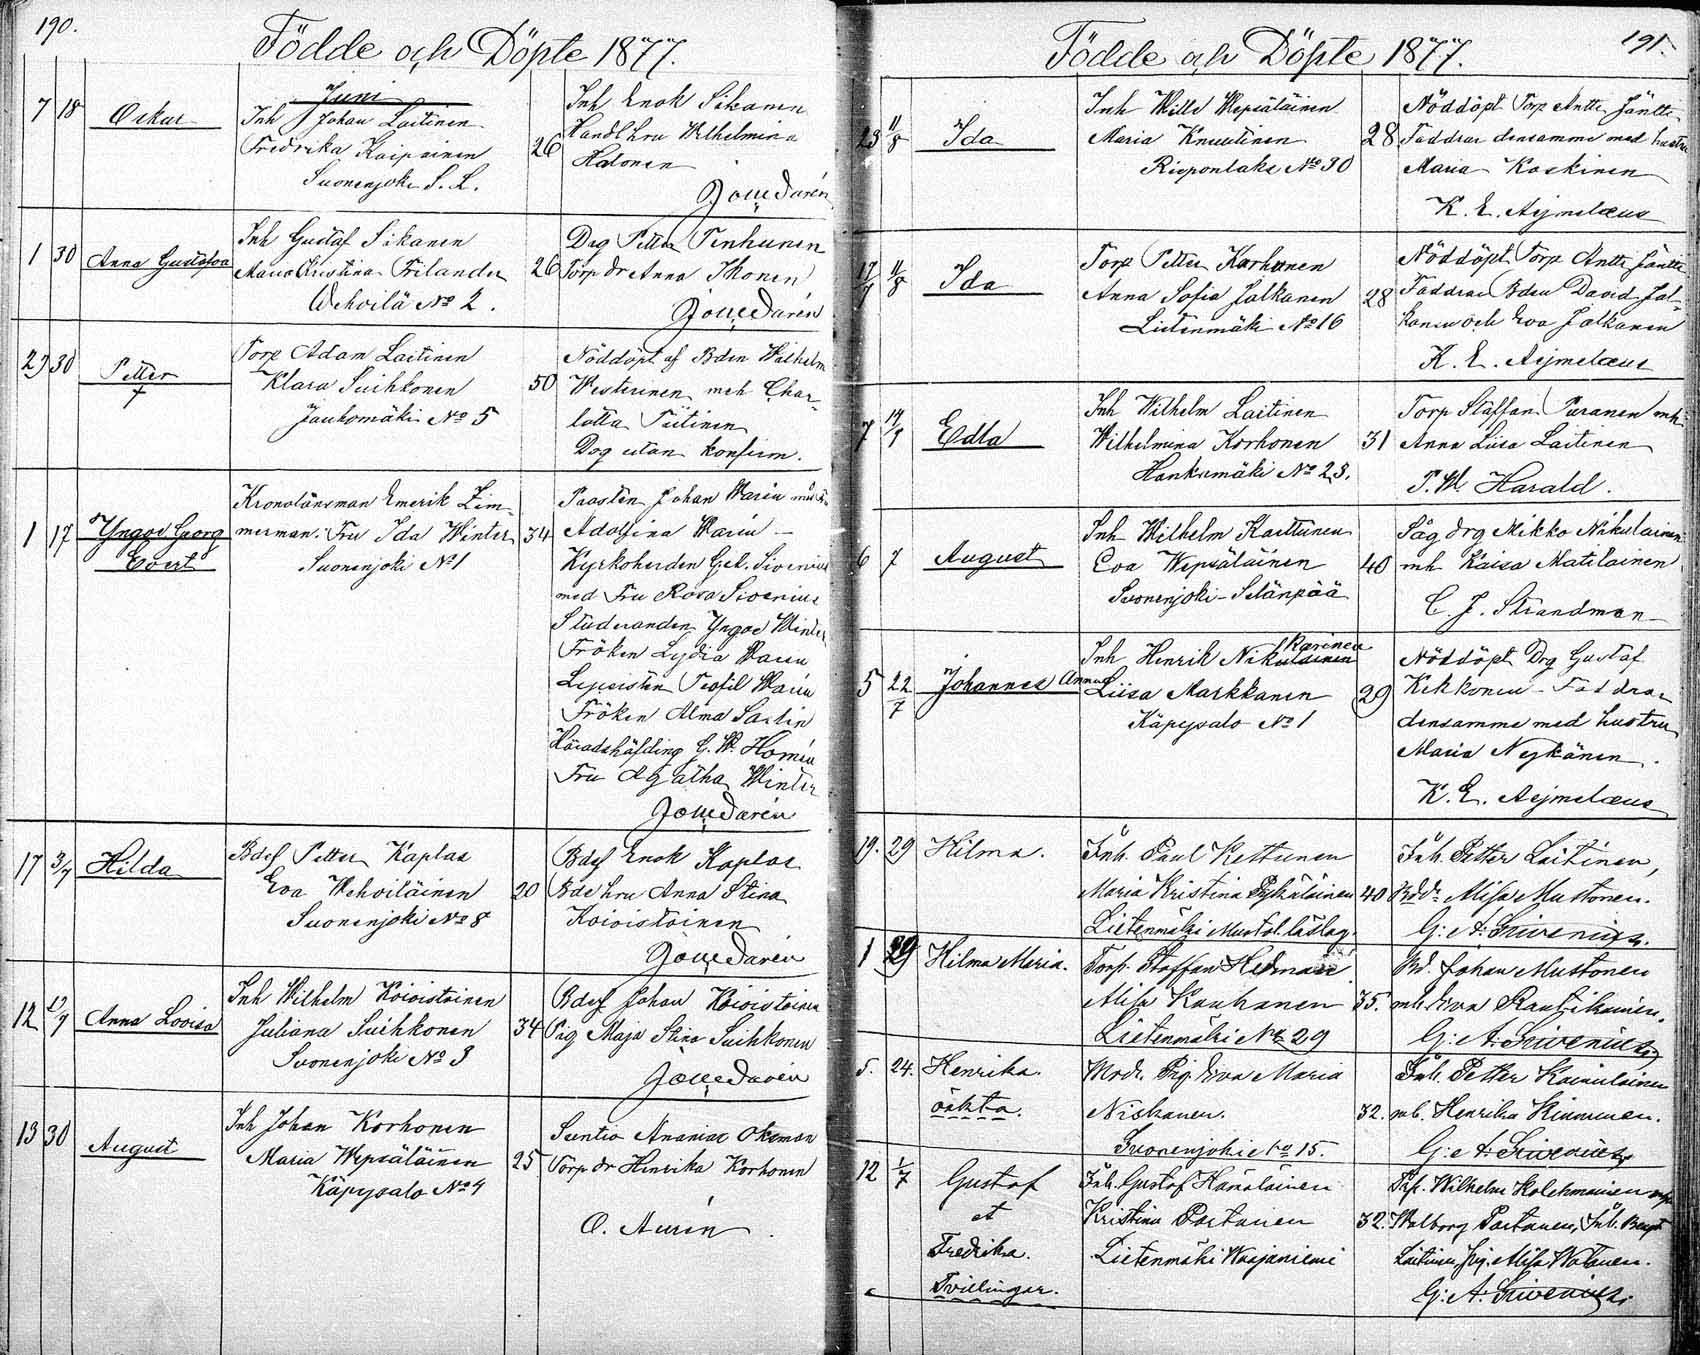 190.
Födde och Döpte 1877.
Juni
7 18 Oskar
Inh Johan Laitinen
Fredrika Kaipainen
Suonenjoki S. L.
26
Inh Enok Sikanen
Handl hru Wilhelmina
Halonen
1 30 Anna Gustafva
Inh Gustaf Sikanen
Maria Christina Frilander
Wehvilä No 2.
26
Drg Petter Tenhunen
Torp dr Anna Ikonen
29 30 Petter
†
Torp Adam Laitinen
Klara Suihkonen
Jauhomäki No 5
50
Nöddöpt af Bden Wilhelm
Westerinen meh Char-
lotta Tiitinen
Dog utan konfirm.
1 17 Yngve Georg
Evert
Kronolänsman Emerik Zim-
merman. Fru Ida Winter
Suonenjoki No 1
34
Johan Warén
Adolfina Warén
Kyrkoherden G. A. Sivenius
med Fru Rosa Sivenius
Studeranden Yngve Winter
Fröken Lydia Warén
Lyceisten Teofil Warén
Fröken Alma Sarlin
Häradshöfding G. W. Homén
Fru Agatha Winter
17 3/7 Hilda
Bdsf Petter Kaplas
Eva Wehviläinen
Suonenjoki No 8
20
Bdsf Enok Kaplas
Bde hru Anna Stina
Koivistoinen
12 Anna Lovisa
Inh Wilhelm Koivistoinen
Juliana Suihkonen
Suonenjoki No 3
34
Bdsf Johan Koivistoinen
Pig Maja Stina Suihkonen
13 30 August
Inh Johan Korhonen
Maria Wepsäläinen
Käpysalo No 4
25
Suntio Ananias Oksman
Torp dr Hinrika Korhonen
O. Aurén
191.
Födde och Döpte 1877.
23 11/8 Ida
Inh Wille Wepsäläinen
Maria Knuutinen
No 30
28
Nöddöpt Torp Antti Jäntti
Faddrar densamme med hustru
Maria Koskinen
K. E. Aejmelæus
17/7 11/8 Ida
Torp Petter Karhunen
Anna Sofia Jalkanen
Lietenmäki No 16
28
Nöddöpt Torp Antti Jäntti
Faddrar Bden David Jal-
kanen och Eva Jalkanen
K. E. Aejmelæus
7 14/9 Edla
Inh Wilhelm Laitinen
Wilhelmina Korhonen
Hankamäki No 23.
31
Torp Staffan Puranen mh
Anna Liisa Laitinen
P. W. Harald.
6 7 August
Inh Wilhelm Karttunen
Eva Wepsäläinen
Suonenjoki-Selänpää
40
Såg drg Mikko Nikulainen
mh Kaisa Matilainen
C. J. Strandman
5 22/7 Johannes
Inh Henrik Nikulainen
Anna
Liisa Markkanen
Käpysalo No 1
29
Nöddöpt Drg Gustaf
Kekkonen – Faddrar
densamme med hustru
Maria Nykänen.
K. E. Aejmelæus
19. 29 Hilma.
Inh. Paul Kettunen
Maria Kristina Pyykäläinen
Lietenmäki
40
Inh. Petter Laitinen,
Alisa Mustonen.
G. A. Sivenius.
1 29 Hilma Maria.
Torp. Staffan Hedman
Alisa Kauhanen
Lietenmäki No 29
35.
Bd. Johan Mustonen
mh. Eva Rautikainen.
G. A. Sivenius
5. 24. Henrika
oäkta.
Modr. Pig. Eva Maria
Niskanen.
Suonenjoki No 15.
32.
Inh. Petter Kainulainen
mh. Henrika Kinnunen.
G. A. Sivenius
12 1/7 Gustaf
et
Fredrika.
Tvillingar.
Inh. Gustaf Hämäläinen
Kristina Partanen
Lietenmäki Waajaniemi
32.
Trp. Wilhelm Kolehmainen
Walborg Partanen, Inh. Bengt
Laitinen, Pig. Alisa Watanen.
G. A. Sivenius.